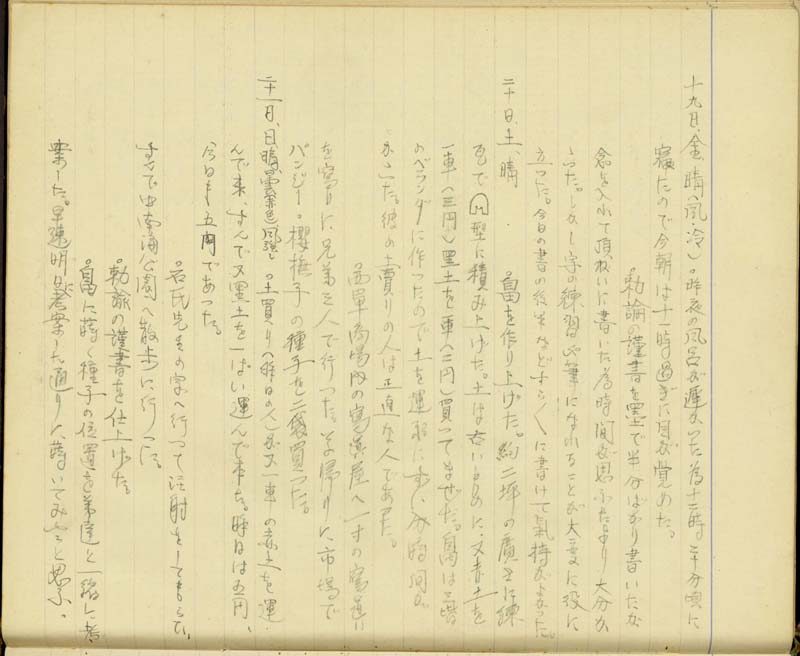 十九日、金、晴(風・冷)。昨夜の風呂が遅かった為十二時二十分頃に
寝たので今朝は十一時過ぎに目が覚めた。
勅諭の謹書を墨で半分ばかり書いたが
念を入れて頂ねいに書いた為時間が思ふたより大分かゝ
った。しかし字の練習や筆になれることが大変に役に
立った。今日の書の後半などすら〱に書けて気持がよかった。
二十日、土、晴 。畠を作り上げた。約二坪の広さに煉
瓦で 型に積み上げた。土は古いものに、又赤土を
一車(三円)黒土を一車(二円)買ってまぜた。畠は二階
のベランダに作ったので土を運ぶに多分時間が
かゝった。彼の土売りの人は正直な人であった。
西単商場内の写真屋へ一寸の写真
を写りに兄弟三人で行った。その帰りに市場で
パンジー。櫻撫子の種子を二袋買った。
二十一日、日、晴、 風強し 。土買り(昨日の人)が又一車の赤土を運
んで来、すんで又黒土を一ぱい運んで来た。昨日は五円、
今日も五円であった。
。石氏先生の家へ行って注射をしてもらひ、
すんで中南海公園へ散歩に行った。
。勅諭の謹書を仕上げた。
。畠に蒔く種子の位置を弟達と一緒に考
案した。早速明日考案した通りに蒔いてみやうと思ふ。